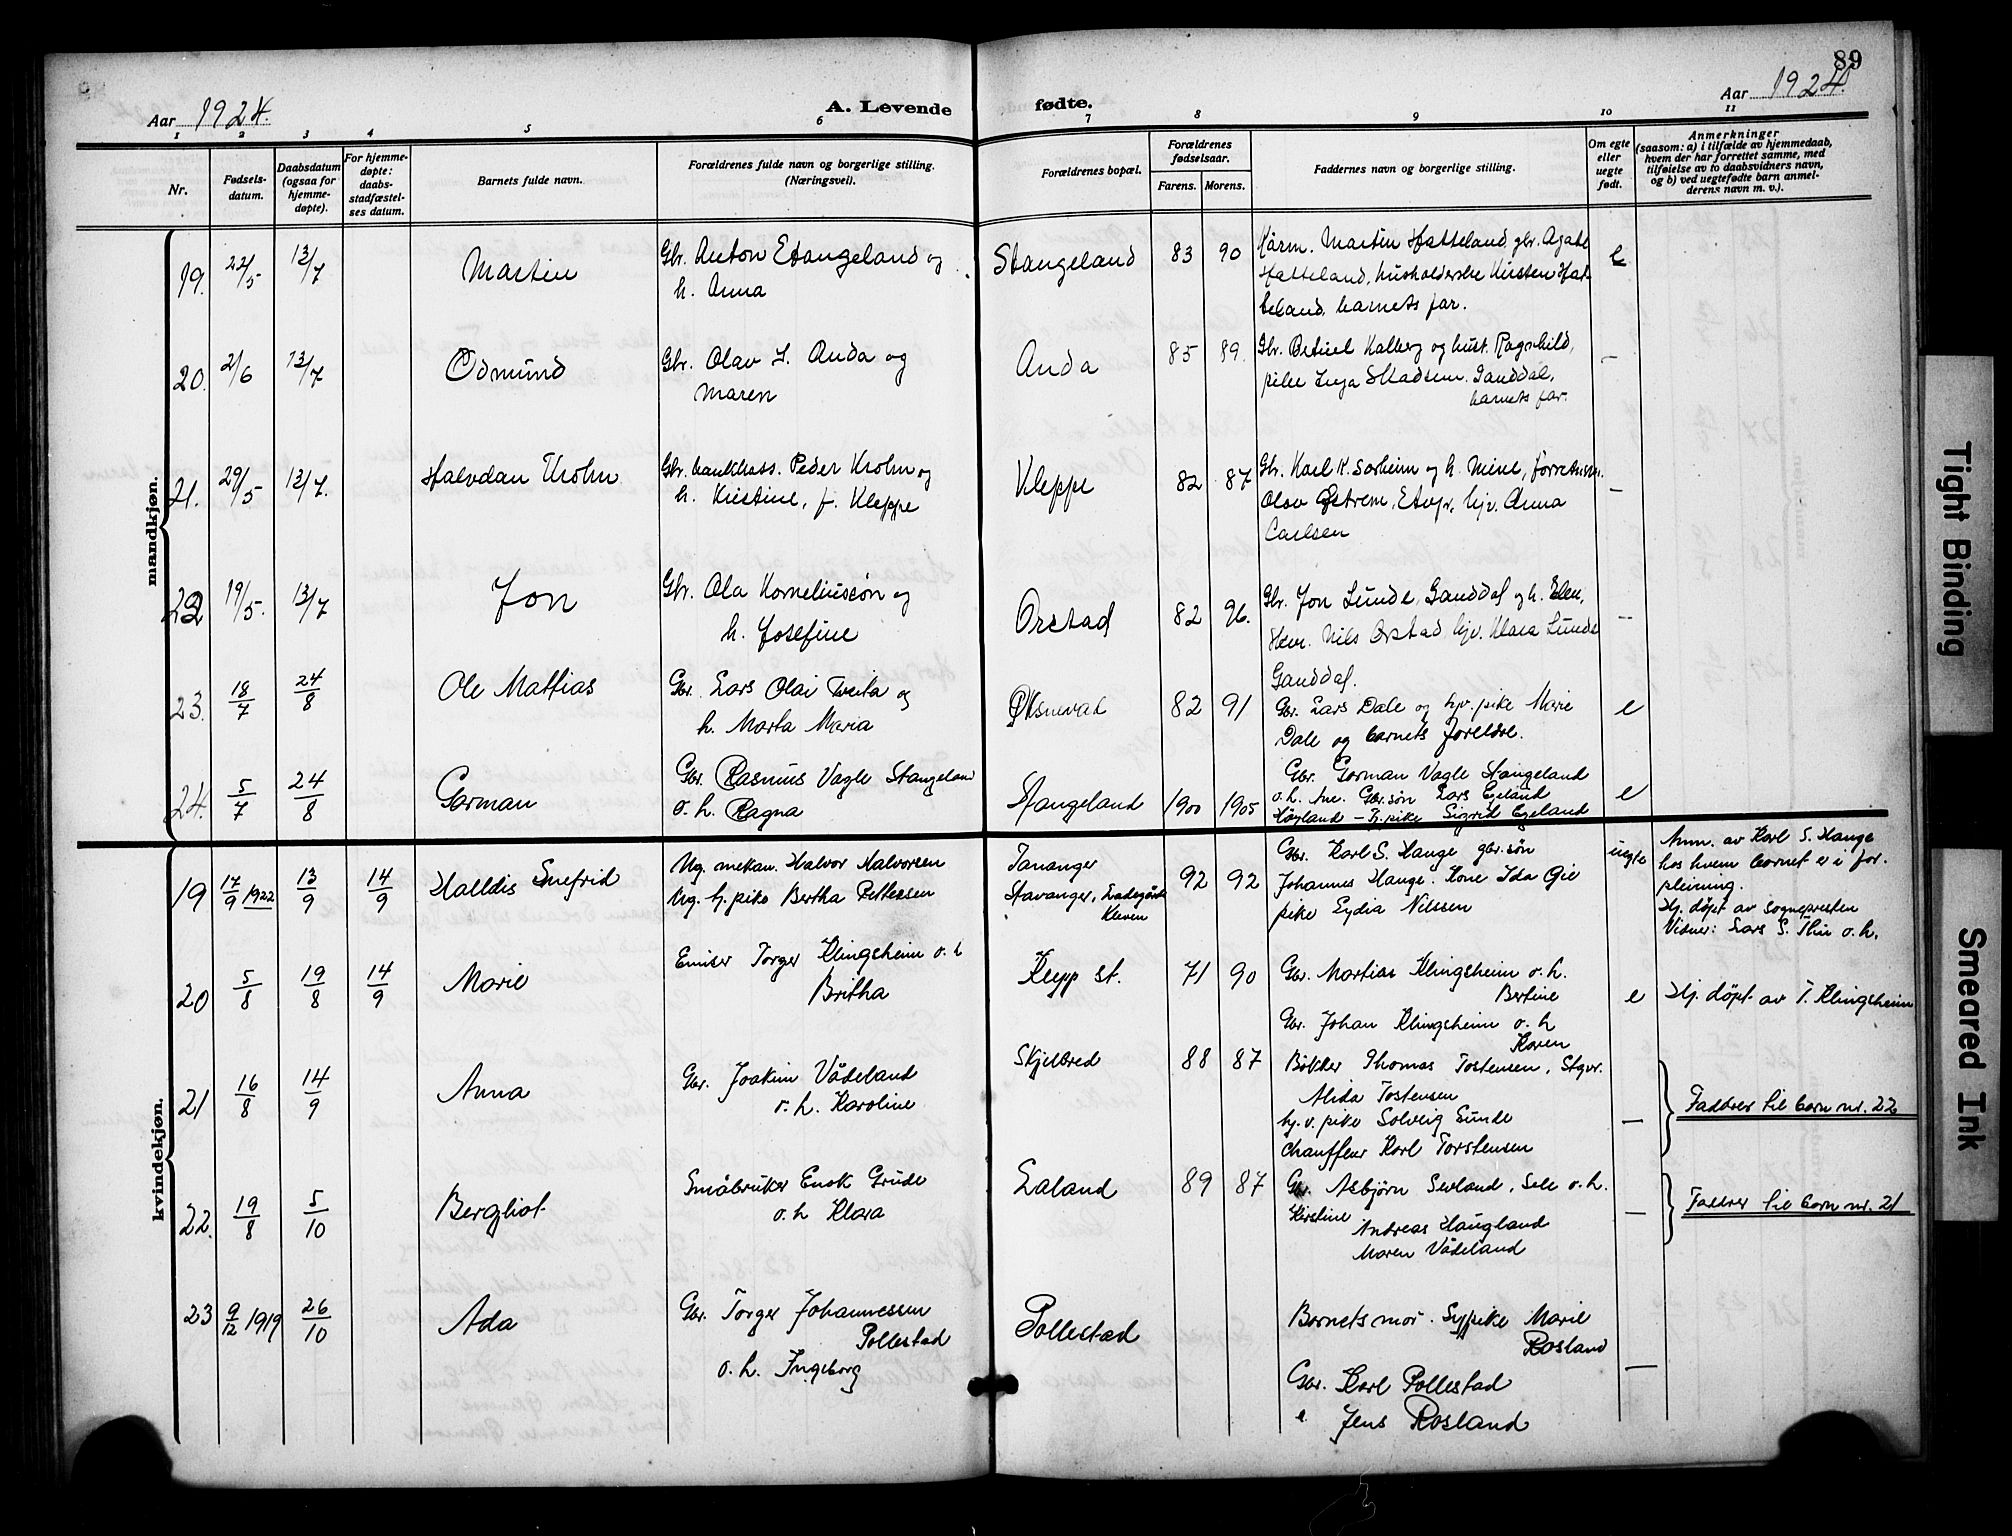 89
Aar 1924.
A. Levende
fødte.
Aar 1924.
1 2 3 4 5 6 7 8 9 10 11
Nr.
Fødsels-
datum.
Daabsdatum
(ogsaa for
hjemme-
døpte).
For hjemme-
døpte:
daabs-
stadfæstel-
ses datum.
Barnets fulde navn.
Forældrenes fulde navn og borgerlige stilling.
(Næringsvei).
Forældrenes bopæl.
Forældrenes
fødselsaar.
Farens. Morens.
Faddernes navn og borgerlige stilling.
Om egte
eller
uegte
født.
Anmerkninger
(saasom: a) i tilfælde av hjemmedaab,
hvem der har forrettet samme, med
tilføielse av to daabsvidners navn,
og b) ved uegtefødte barn anmel-
derens navn m. v.).
mandkjøn.
19. 22/5 13/7 Martin
Gbr. Anton Stangeland og
h. Anna
Stangeland 83 90
Martin Hatteland, gbr. Agate
Hatteland, husholderske Kirsten Hat-
teland, barnets far.
e
20. 2/6 13/7 Odmund
Gbr. Olav I. Anda og
Maren
Anda 85 89.
Gbr. Betuel Kalberg og hust. Ragnhild,
pike Inga Madsen. Ganddal,
barnets far.
—
21. 29/5 13/7. Halvdan Krohn
Gbr. bankkass. Peder Krohn og
h. Kristine, f. Kleppe
Kleppe 82 87
Gbr. Karl K. Sørheim og h. Mine, forretnsm.
Olav Østrem, Stvgr, hjv. Anna
Carlsen
—
22 19/5. 13/7 Jon
Gbr. Ola Korneliussøn og
h. Josefine
Orstad 82 96.
Gbr. Jon Lunde, Ganddal og h. Elen,
Nils Orstad hjv. Klara Lunde
Ganddal.
—
23. 18/7 24/8 Ole Mattias
Gbr. Lars Olai Tveita og
h. Marta Maria
Øksnevad 82 91
Gbr. Lars Dale og hjv. pike Marie
Dale og barnets foreldre.
e
24. 5/7 24/8 Garman
Gbr. Rasmus Vagle Stangeland
o. h. Ragna
Stangeland 1900 1905
Gbr. Garman Vagle Stangeland
o. h. Ane. Gbr.søn Lars Egeland
Høyland – h. pike Sigrid Egeland
e
kvindekjøn.
19 17/9 1922 13/9 14/9 Halldis Snefrid
Ug. mekan. Halvor Halvorsen
Ug. hj. pike Bertha Pettersen
Tananger
Stavanger, Ladegård
Kleven
92 92
Gbr. Karl S. Hauge gbr.søn
Johannes Hauge. Kone Ida Gie
pike Lydia Nilssen
uegte
Anm. av Karl S. Hauge
hos hvem barnet er i for-
pleining.
Hj. døpt av sognepresten
Vidner: Lars S. Thu o. h.
20 5/8 19/8 14/9 Marie
Torger Klingsheim o. h
Britha
Klepp st. 71 90
Gbr. Mathias Klingsheim o. h.
Bertine
Gbr. Johan Klingsheim o. h
Karen
e
Hj. døpt av T. Klingsheim
21 16/8 14/9 Anna
Gbr. Joakim Vådeland
o. h. Karoline
Skjelbred 88 87
Bøkker Thomas Tostensen, Stgvr.
Alida Tostensen
hj. v. pike Solveig Lunde
chauffeur Karl Torstensen
—
Faddrer til barn nr. 22
22. 19/8 5/10 Bergliot
Småbruker Enok Grude
o. h Klara
Laland 89 87
Gbr. Asbjørn Sevland, Sele o. h.
Kirstine
Andreas Haugland
Maren Vådeland
—
Faddrer til barn nr. 21
23 9/12 1919 26/10 Ada
Gbr. Torger Johannessen
Pollestad
o. h. Ingeborg
Pollestad
Barnets mor. Sypike Marie
Rosland
Gbr. Karl Pollestad
" Jens Rosland
—
Tight Binding
Smeared Ink